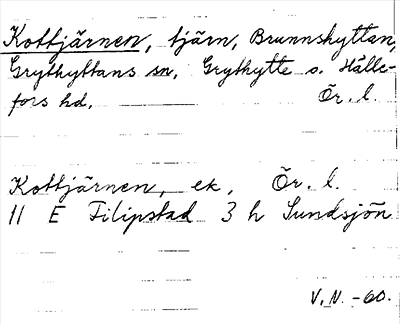 Kottjärnen, tjärn, Brunnshyttan,
Grythyttans sn, Grythytte o. Hälle-
fors hd. Ör. l.
Kottjärnen, ek, Ör. l.
11 E Filipstad 3 h Sundsjön
V. N. -60.